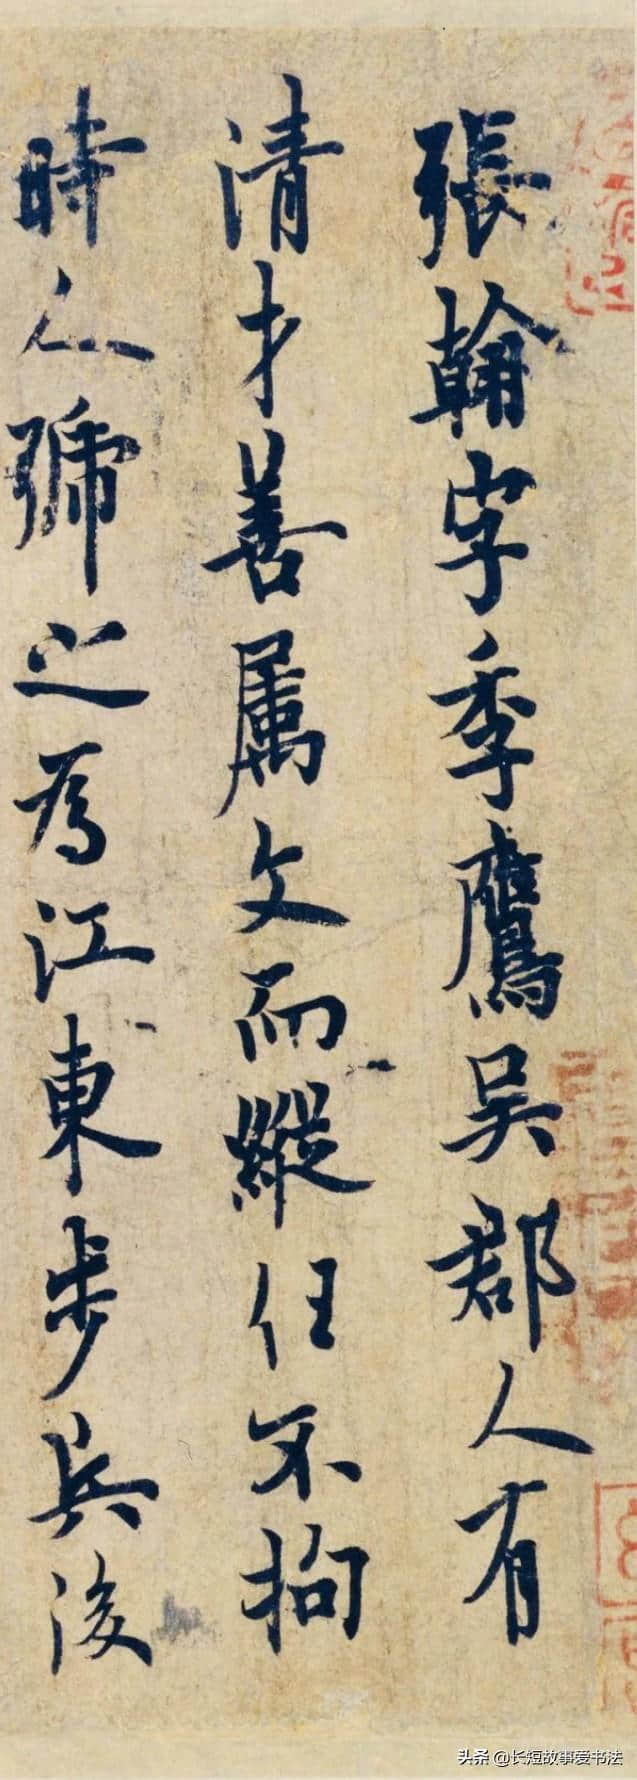 張翰字季鷹吳郡人有
清才善属文而縱任不拘
時人號之為江東步兵後
头条 @长短故事爱书法